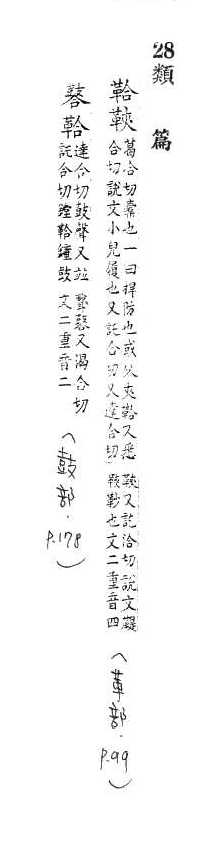 28類篇
鞈䩡葛合切櫜也一曰捍防也或从夾鞈又悉
合切說文小兒履也又託合切又達合切
䩡又訖洽切說文鞮
也文二重音四
(革部.P.99)
鞈達合切鼓聲又並
託合切鏜鞈鐘鼓
又渴合切
文二重音二
(鼓部.P.178)